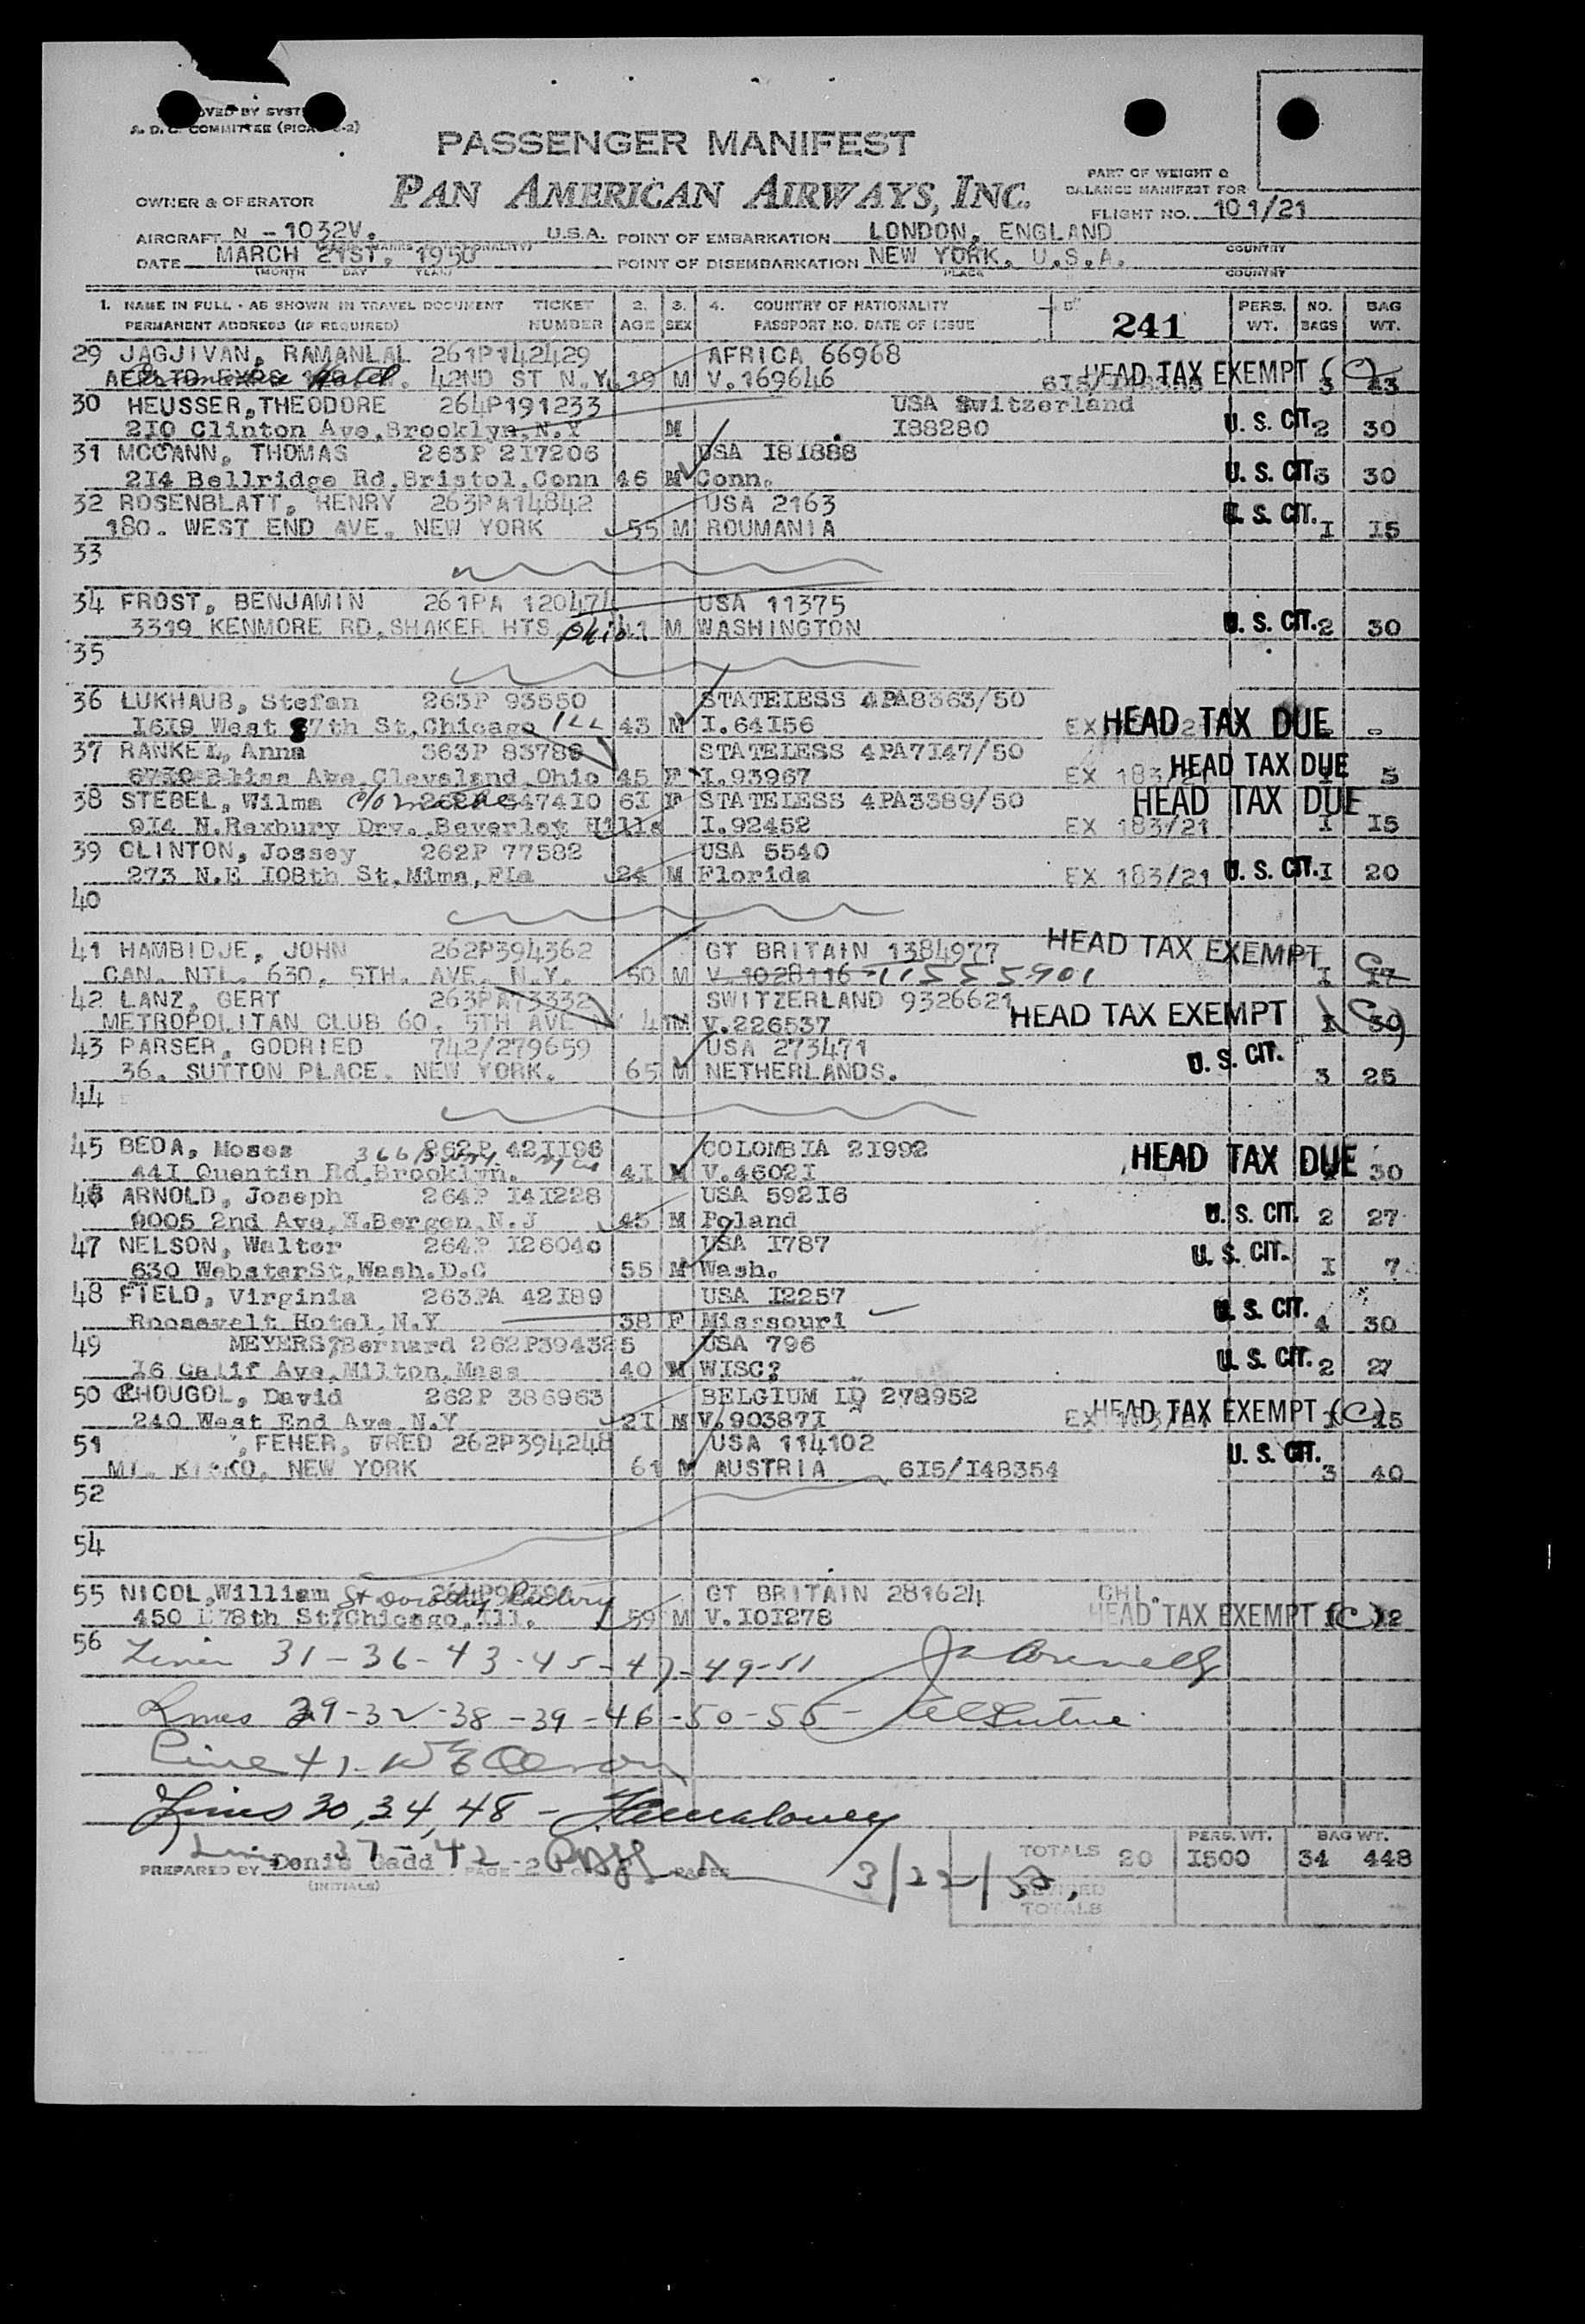 PASSENGER MANIFEST
PAN AMERICAN AIRWAYS, INC.
OWNER & OPERATOR
PART OF WEIGHT &
BALANCE MANIFEST FOR
FLIGHT NO. 101/21
AIRCRAFT N - 1032V. U.S.A. POINT OF EMBARKATION LONDON, ENGLAND
COUNTRY
DATE MARCH 21ST, 1950 POINT OF DISEMBARKATION NEW YORK, U.S.A.
(MONTH DAY YEAR) PLACE COUNTRY
1. NAME IN FULL - AS SHOWN IN TRAVEL DOCUMENT TICKET 2. 3. 4. COUNTRY OF NATIONALITY 5. PERS. NO. BAG
PERMANENT ADDRESS (IF REQUIRED) NUMBER AGE SEX PASSPORT NO. DATE OF ISSUE 241 WT. BAGS WT.
29 JAGJIVAN, RAMANLAL 261P142429 AFRICA 66968
Hotel 42ND ST N.Y. 39 M V.169646 HEAD TAX EXEMPT (C) 3
30 HEUSSER,THEODORE 264P191233 USA Switzerland
210 Clinton Ave,Brooklyn,N.Y M I88280 U. S. CIT. 2 30
31 MCCANN, THOMAS 263P 217206 USA I81888
214 Bellridge Rd,Bristol,Conn 46 M Conn. U. S. CIT. 3 30
32 ROSENBLATT, HENRY 263PA14842 USA 2163
180. WEST END AVE, NEW YORK 55 M ROUMANIA U. S. CIT. I I5
33
34 FROST, BENJAMIN 261PA 120474 USA 11375
3319 KENMORE RD,SHAKER HTS Ohio 41 M WASHINGTON U. S. CIT. 2 30
35
36 LUKHAUB, Stefan 263P 93550 STATELESS 4PA8363/50
I6I9 West 87th St,Chicago Ill 43 M I.64I56 EX HEAD TAX DUE -
37 RANKEL, Anna 363P 83786 STATELESS 4PA7I47/50
6710 Bliss Ave,Cleveland,Ohio 45 F I.93967 EX 183/21 HEAD TAX DUE I 5
38 STEBEL, Wilma 6I F STATELESS 4PA3389/50 HEAD TAX DUE
914 N.Roxbury Drv. Beverley Hills I.92452 EX 183/21 I I5
39 CLINTON, Jossey 262P 77582 USA 5540
273 N.E I08th St,Mima,Fla 24 M Florida EX 183/21 U. S. CIT. I 20
40
41 HAMBIDJE, JOHN 262P394362 GT BRITAIN 1384977 HEAD TAX EXEMPT
CAN. NTL. 630, 5TH. AVE, N.Y. 50 M V.1028116 I C
42 LANZ, GERT 263PA13332 SWITZERLAND 9326621
METROPOLITAN CLUB 60. 5TH AVE NY M V.226537 HEAD TAX EXEMPT I (C) 30
43 PARSER, GODRIED 742/279659 USA 273471
36. SUTTON PLACE. NEW YORK. 65 M NETHERLANDS. U. S. CIT. 3 25
44
45 BEDA, Moses 262P 42II96 COLOMBIA 2I992
44I Quentin Rd,Brooklyn. 4I M V.4602I HEAD TAX DUE 30
46 ARNOLD, Joseph 264P I4I228 USA 592I6
9005 2nd Ave,N.Bergen,N.J 45 M Poland U. S. CIT. 2 27
47 NELSON, Walter 264P I26040 USA I787
630 WebsterSt,Wash.D.C 55 M Wash. U. S. CIT. I 7
48 FIELD, Virginia 263PA 42I89 USA I2257
Roosevelt Hotel,N.Y 38 F Misssouri U. S. CIT. 4 30
49 MEYERS, Bernard 262P394325 USA 796
I6 Calif Ave,Milton,Mass 40 M WISC. U. S. CIT. 2 27
50 CHOUGOL, David 262P 386963 BELGIUM ID 278952
240 West End Ave,N.Y 2I M V.90387I EX HEAD TAX EXEMPT (C) I5
51 FEHER, FRED 262P394248 USA 114102
MT. KISKO, NEW YORK 61 M AUSTRIA 6I5/I48354 U. S. CIT. 3 40
52
54
55 NICOL,William St Dorothy Rectory GT BRITAIN 281624 CHI.
450 E 78th St,Chicago,Ill. 59 M V.I0I278 HEAD TAX EXEMPT (C) I2
56 Lines 31-36-43-45-47-49-51
Lines 29-32-38-39-46-50-55
Line 41-
Lines 30,34,48 -
Lines 37-42
PREPARED BY Denis Cadd PAGE 2 PAGES 3/22/50
(INITIALS)
PERS. WT. BAG WT.
TOTALS 20 I500 34 448
REVISED
TOTALS